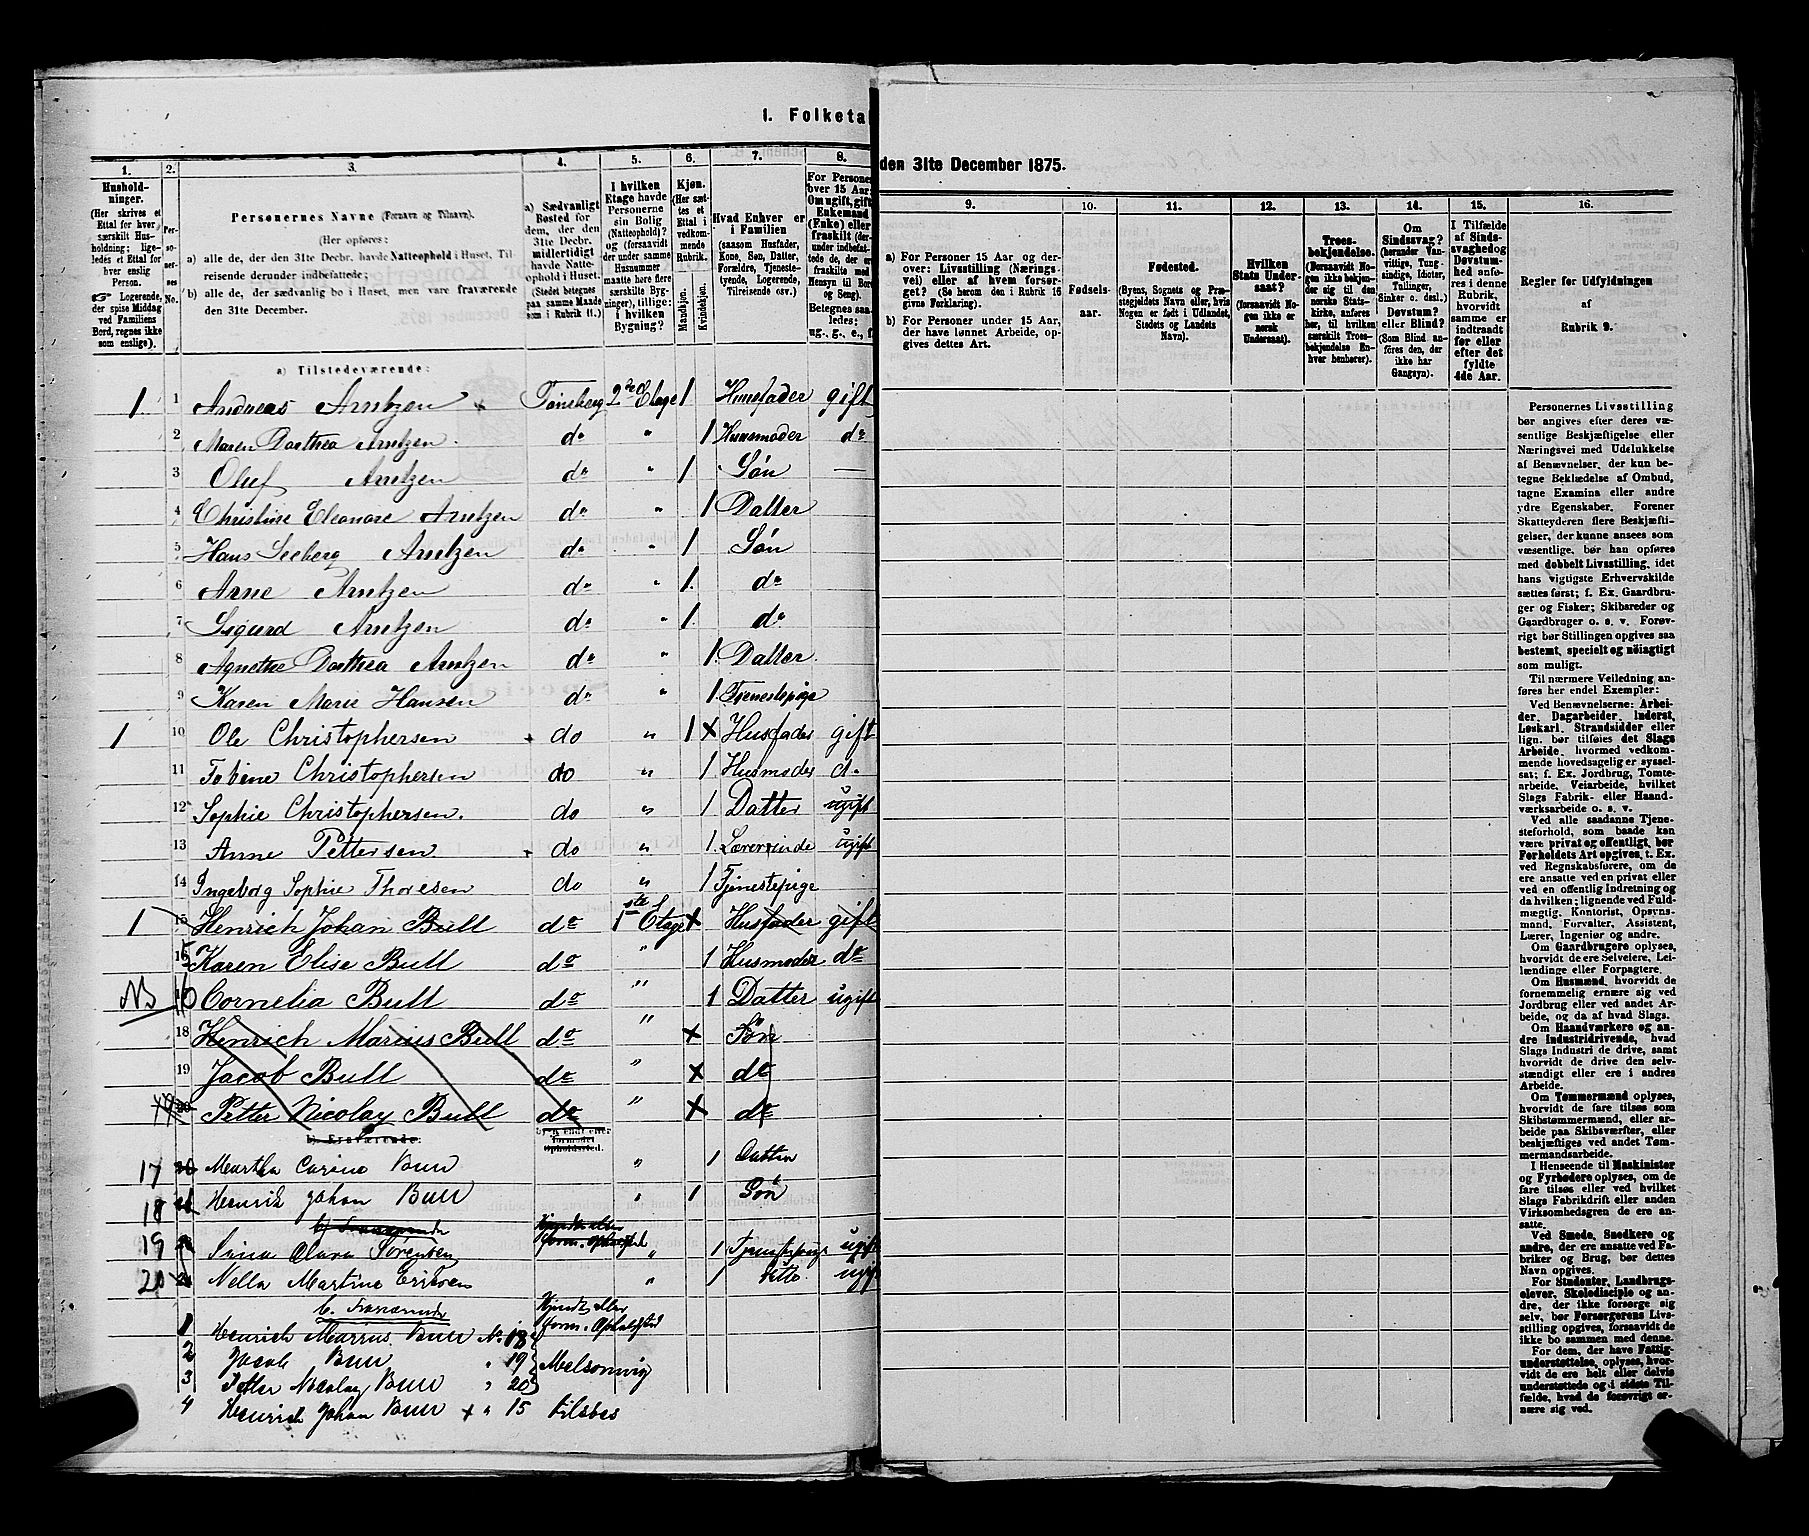 I. Folketal
den 31te December 1875.
1. 2. 3. 4. 5. 6. 7. 8.
Hushold-
ninger.
(Her skrives et
Ettal for hver
særskilt Hus-
holdning; lige-
ledes et Ettal for
hver enslig
Person.
☞ Logerende,
der spise Middag
ved Familiens
Bord, regnes ikke
som enslige).
Per-
so-
ner-
nes
No.
Personernes Navne (Fornavn og Tilnavn).
(Her opføres:
a) alle de, der den 31te Decbr. havde Natteophold i Huset, Til-
reisende derunder indbefattede;
b) alle de, der sædvanlig bo i Huset, men vare fraværende
den 31te December.
a) Sædvanligt
Bosted for
dem, der den
31te Decbr.
midlertidigt
havde Natte-
ophold i Huset.
(Stedet betegnes
paa samme Maade
som i Rubrik 11.)
I hvilken
Etage havde
Personerne
sin Bolig
(Natteophold)?
og (forsaavidt
der under samme
Husnummer
maatte være flere
særskilte Byg-
ninger), tillige:
i hvilken
Bygning?
Kjøn.
(Her sæt-
tes et
Ettal i
vedkom-
mende
Rubrik.
Mandkjøn.
Kvindekjøn.
Hvad Enhver er
i Familien
(saasom Husfader,
Kone, Søn, Datter,
Forældre, Tjeneste-
tyende, Logerende,
Tilreisende osv.)
For Personer
over 15 Aar:
Om ugift, gift,
Enkemand
(Enke) eller
fraskilt (der-
under indbefat-
tede de, der ere
fraskilte med
Hensyn til Bord
og Seng).
Betegnes saa-
ledes:
ug., g., e., f.
a) Tilstedeværende:
1 1 Andreas Arntzen Tønsberg 2den Etage 1 Husfader gift
2 Maren Dorthea Arntzen do " 1 Husmoder do
3 Oluf Arntzen do " 1 Søn —
4 Christine Eleonore Arntzen do " 1 Datter
5 Hans Seeberg Arntzen do " 1 Søn
6 Arne Arntzen do " 1. do
7 Sigurd Arntzen do " 1. do
8 Agnethe Dorthea Arntzen do " 1. Datter.
9 Karen Marie Hansen do " 1. Tjenestepige
1 10 Ole Christophersen do " 1 x Husfader gift
11 Tobine Christophersen do " 1 Husmoder do
12 Sophie Christophersen. do " 1 Datter ugift
13 Anne Pettersen. do " 1. Lærerinde ugift
14 Ingeborg Sophie Thoresen do " 1 Tjenestepige
1 15 Henrich Johan Bull do 1ste Etage x Husfader gift
15 Karen Elise Bull do " 1 Husmoder do
NB 16 Cornelia Bull do " 1 Datter ugift
18 Henrich Marius Bull do " x Søn
19 Jacob Bull do " x do
20 Petter Nicolay Bull do " x do
b) Fraværende:
byen endt eller
formodet
Opholdssted.
17 Martha Carine Bull " 1 Datter
18 Henrik Johan Bull " 1 Søn
b) Fraværende
Kjendt eller
form. Opholdsted
19 Clara Sørensen " 1 ugift
20 Nella Martine " 1 ditto. ugift
b. Fraværende
Kjendt eller
form. Opholdsted
1 Henrich Marius Bull No. 18
2 Jacob Bull " 19 Melsomvig
3 Petter Nicolay Bull " 20
4 Henrich Johan Bull x " 15
9. 10. 11. 12. 13. 14. 15. 16.
a) For Personer 15 Aar og der-
over: Livsstilling (Nærings-
vei) eller af hvem forsør-
get? (Se herom den i Rubrik 16
givne Forklaring).
b) For Personer under 15 Aar,
der have lønnet Arbeide, op-
gives dettes Art.
Fødsels-
aar.
Fødested.
(Byens, Sognets og Præ-
stegjeldets Navn eller, hvis
Nogen er født i Udlandet,
Stedets og Landets
Navn).
Hvilken
Stats Under-
saat?
(forsaavidt No-
gen ikke er
norsk
Undersaat).
Troes-
bekjendelse.
(Forsaavidt No-
gen ikke bekjen-
der sig til den
norske Stats-
kirke, anføres
her, til hvilken
særskilt Troes-
bekjendelse En-
hver henhører).
Om
Sindssvag?
(herunder Van-
vittige, Tung-
sindige, Idioter,
Tullinger,
Sinker o. desl.)
Døvstum?
eller Blind?
(Som Blind an-
føres den, der
ikke har
Gangsyn).
I Tilfælde
af Sinds-
svaghed og
Døvstum-
hed anfø-
res i denne
Rubrik,
hvorvidt
samme er
indtraadt
før eller
efter det
fyldte
4de Aar.
Regler for Udfyldningen
af
Rubrik 9.
Personernes Livsstilling
bør angives efter deres væ-
sentlige Beskjæftigelse eller
Næringsvei med Udelukkelse
af Benævnelser, der kun be-
tegne Beklædelse af Ombud,
tagne Examina eller andre
ydre Egenskaber. Forener
Skatteyderen flere Beskjæfti-
gelser, der kunne ansees som
væsentlige, bør han opføres
med dobbelt Livsstilling, idet
hans vigtigste Erhvervskilde
sættes først; f. Ex. Gaardbru-
ger og Fisker; Skibsreder og
Gaardbruger o. s. v. Forøv-
rigt bør Stillingen opgives saa
bestemt, specielt og nøiagtigt
som muligt.
Til nærmere Veiledning an-
føres her endel Exempler:
Ved Benævnelserne: Arbei-
der, Dagarbeider, Inderst,
Løskarl, Strandsidder eller
lign. bør tilføies det Slags
Arbeide, hvormed vedkom-
mende hovedsagelig er syssel-
sat; f. Ex. Jordbrug, Tomte-
arbeide, Veiarbeide, hvilket
Slags Fabrik- eller Haand-
værksarbeide o. s. v.
Ved alle saadanne Tjene-
steforhold, som baade kan
være privat og offentligt, bør
Forholdets Art opgives, t. Ex.
ved Regnskabsførere, om de
ere ansatte ved en privat eller
ved en offentlig Indretning og
da hvilken; lignende ved Fuld-
mægtig, Kontorist, Opsyns-
mand, Forvalter, Assistent,
Lærer, Ingeniør og andre.
Om Gaardbrugere oplyses,
hvorvidt de ere Selveiere, Lei-
lændinge eller Forpagtere.
Om Husmænd, hvorvidt de
fornemmelig ernære sig ved
Jordbrug eller ved andet Ar-
beide, og da af hvad Slags.
Om Haandværkere og an-
dre Industridrivende, hvad
Slags Industri de drive, samt
hvorvidt de drive den selv-
stændigt eller ere i andres
Arbeide.
Om Tømmermænd oplyses,
hvorvidt de fare tilsøs som
Skibstømmermænd, eller ar-
beide paa Skibsværfter, eller
beskjæftiges ved andet Tøm-
mermandsarbeide.
I Henseende til Maskinister
og Fyrbødere oplyses, om de
fare tilsøs eller ved hvilket
Slags Fabrikdrift eller anden
Virksomhedsgren de ere an-
satte.
Ved Smede, Snedkere og
andre, der ere ansatte ved Fa-
briker og Brug, bør dettes
Navn opgives.
For Studenter, Landbrugs-
elever, Skoledisciple og an-
dre, der ikke forsørge sig
selv, bør Forsørgerens Livs-
stilling opgives, forsaavidt de
ikke bo sammen med denne.
For dem, der have Fattig-
understøttelse, oplyses, hvor-
vidt de ere helt eller delvis
understøttede og i sidste Til-
fælde, hvad de forøvrigt er-
nære sig ved.